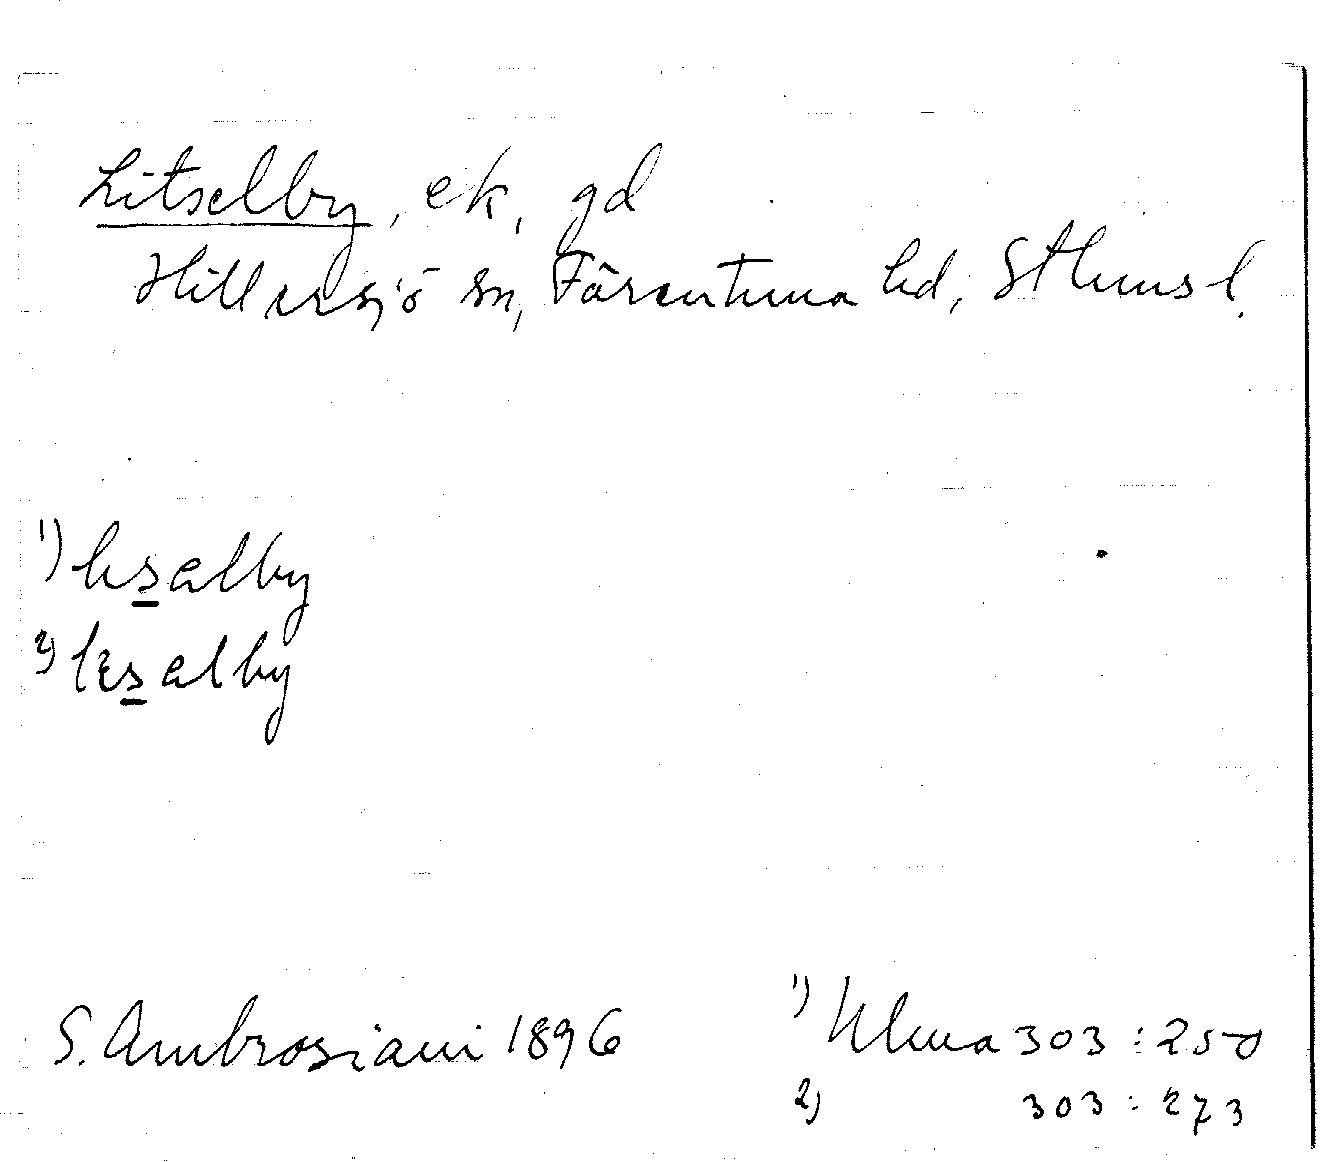 Litselby, ek, gd
Hillersjö sn, Färentuna hd, Sthms l.
1) lisalby
2) lesalby
S. Ambrosiani 1896
1) Ulma 303:250
2) 303:273